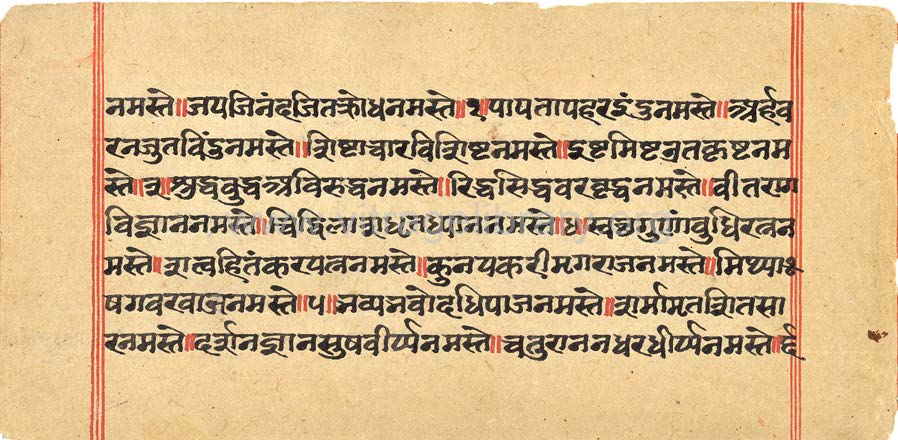 नमस्ते॥जयजिनंदजितक्रोधनमस्ते॥२॥पापतापहरइंदुनमस्ते॥अर्हंव
रनजुतविंदुनमस्ते॥शिष्टाचारविशिष्टनमस्ते॥इष्टमिष्टउतकृष्टनम
स्ते॥३॥शुद्धबुद्धअविरुद्धनमस्ते॥रिद्धसिद्धवरवृद्धनमस्ते॥वीतराग
विज्ञाननमस्ते॥चिद्विलासधृतध्याननमस्ते॥४॥स्वच्छगुणांबुधिरत्नन
मस्ते॥सत्वहितंकरयत्ननमस्ते॥कुनयकरीमृगराजनमस्ते॥मिथ्या
षगवरवाजनमस्ते॥५॥भव्यभवोदधिपाजनमस्ते॥शर्मामृतशितसा
रनमस्ते॥दर्शनज्ञानसुषवीर्य्यनमस्ते॥चतुराननधरधीर्य्यनमस्ते॥ह